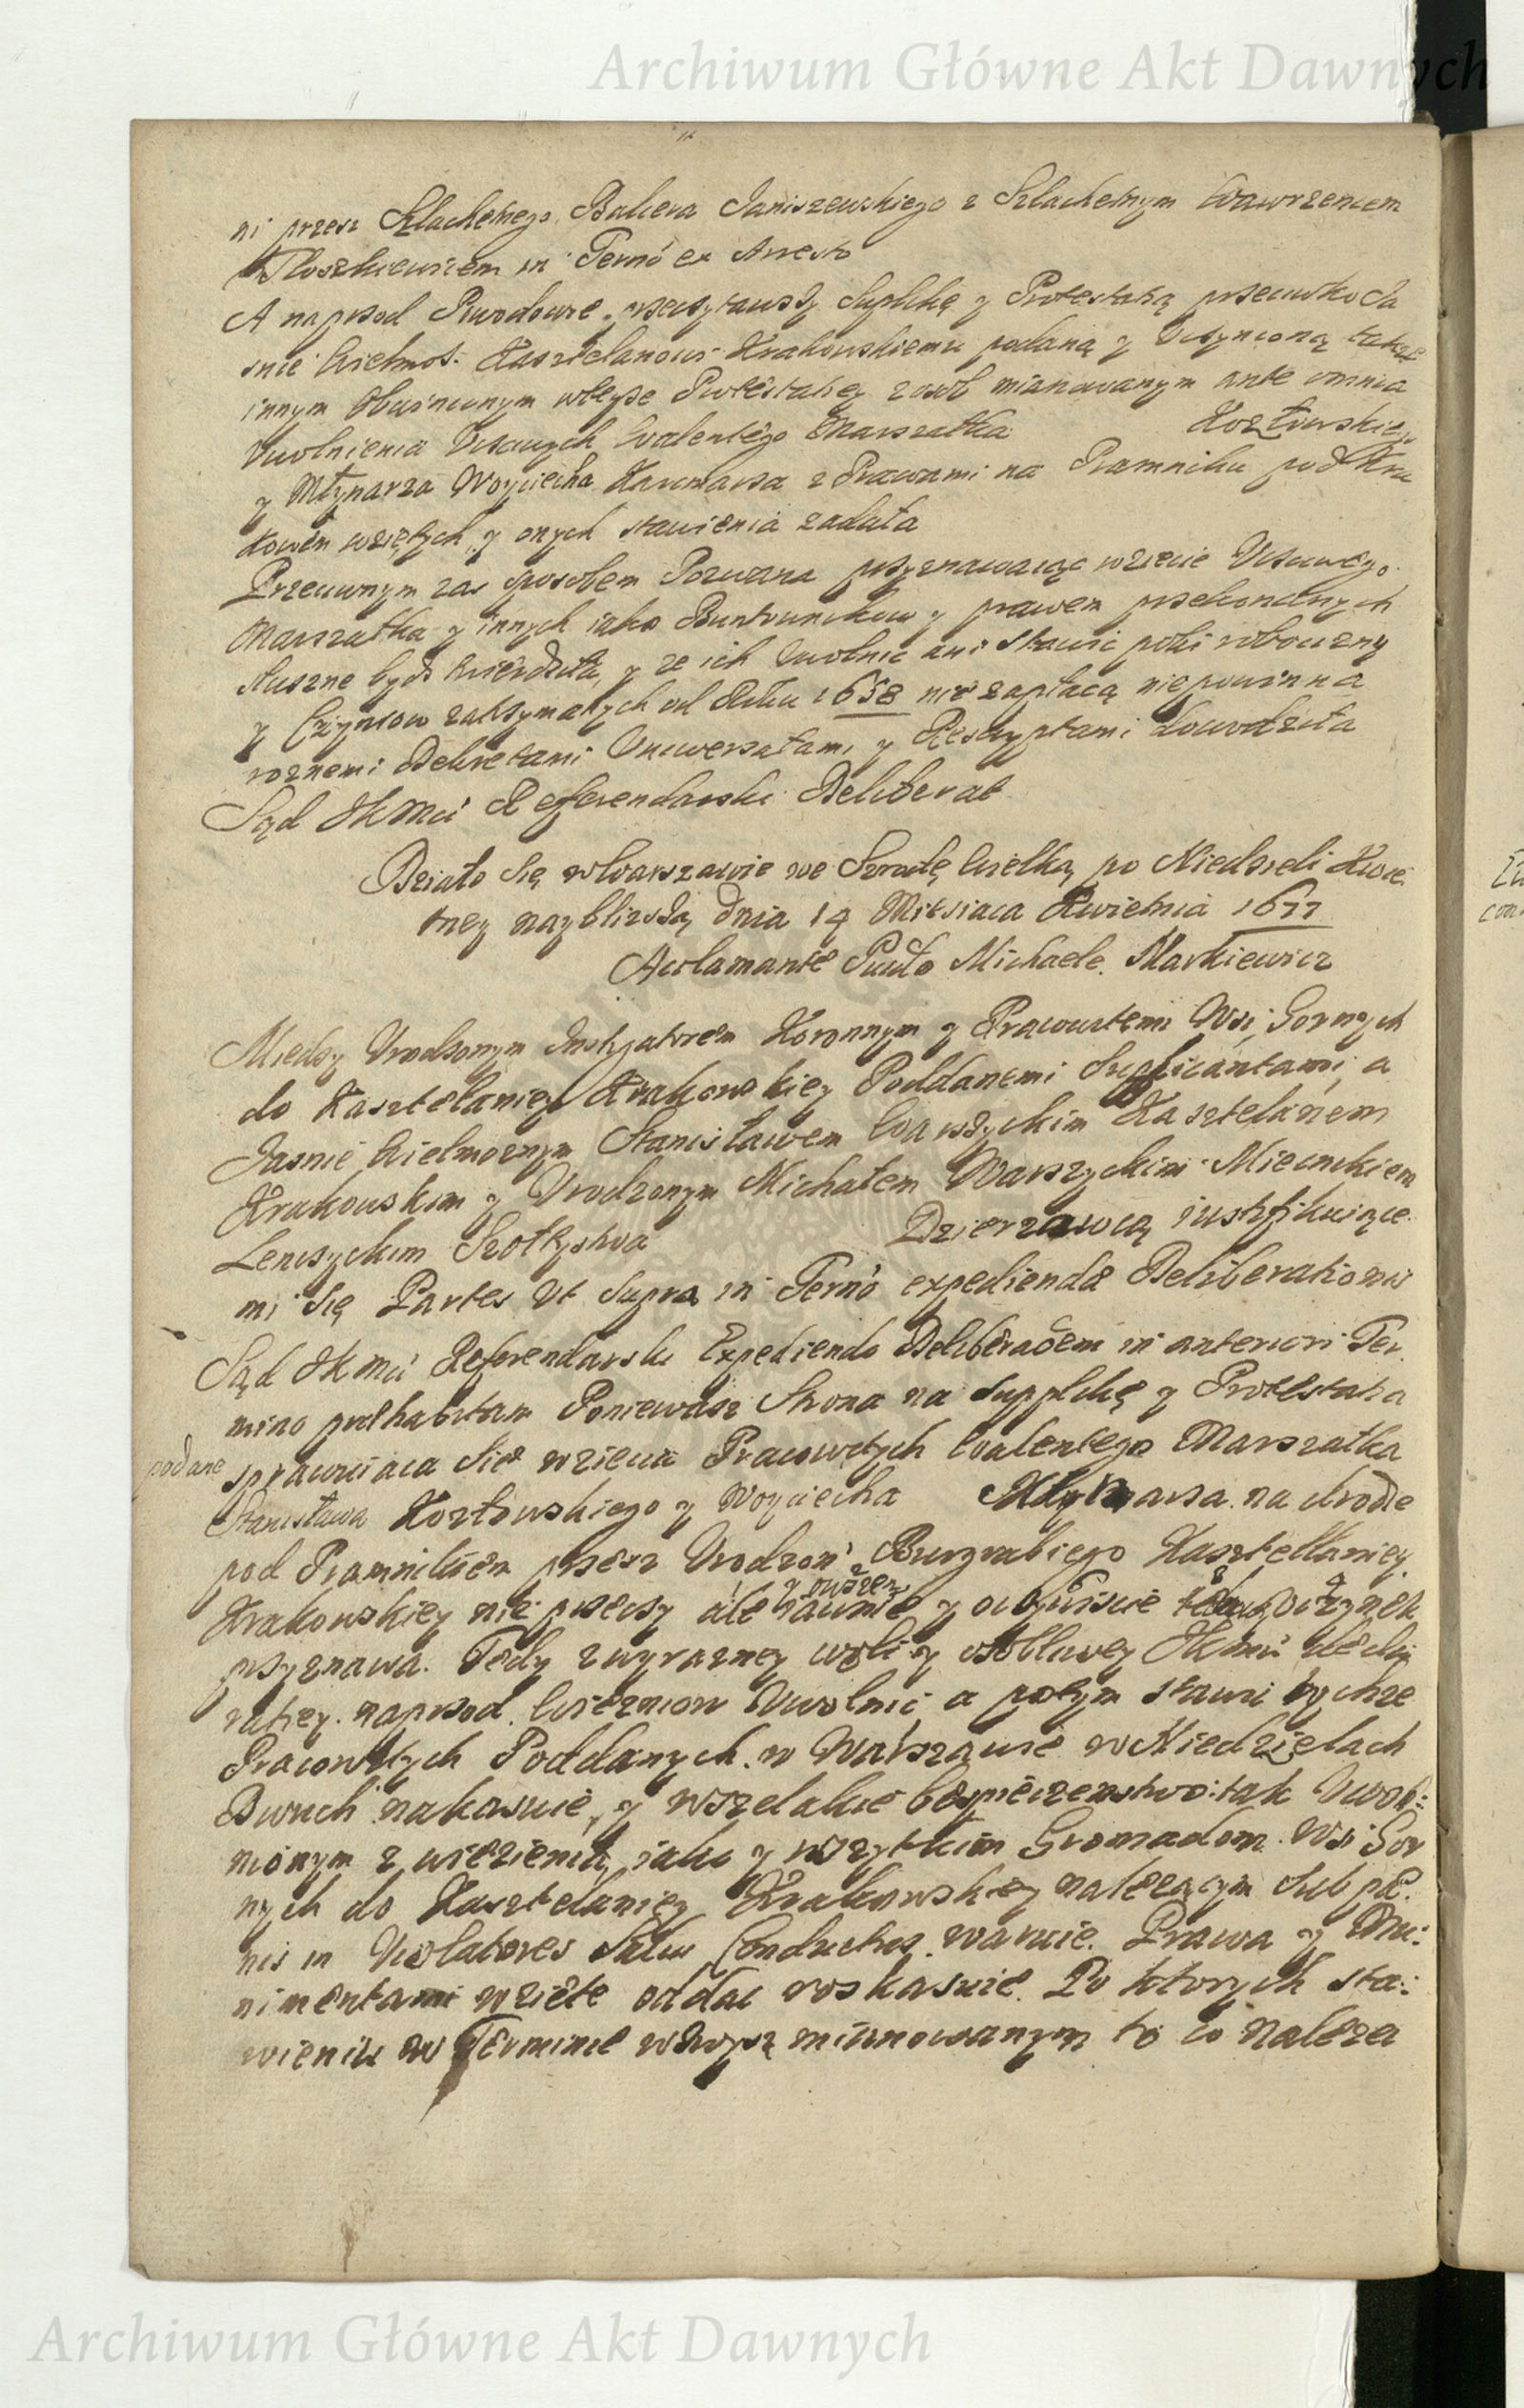 Archiwum Główne Akt Dawnych
ni przesz Szlachetnego Balcera Janiszewskiego z Szlachetnym Wawrzencem
Floszkiewicem in Termō ex Arresto
A naprzod Powodowie przeczytawszy Suplikę y Protestatią przeciwko Ja
snie Wielmoż. Kasztelanowi Krakowskiemu podaną y Uczynioną także
innym Obwinionym wteyże Protestatiey zosob mianowanym ante omnia
Uwolnienia Uczciwych Walentego Marszałka Kozłowskiego
y Młynarza Woyciecha Karczmarza z Prawami na Pramniku pod Kra
kowem wziętych y onych stawienia żądała
Przeciwnym zas sposobem Pozwana przyznawaiąc wziecie Uczciwego
Marszałka y innych iako Buntownikow y prawem przekonanych
słuszne bydź twierdziła, y że ich Uwolnic ani Stawic poki robocizny
y Czynszow zatrzymanych od Roku 1658 nie zapłacą niepowinna
roznemi Dekretami Uniwersałami y Reskryptami dowodziła
Sąd JKMci Referendarski Deliberat
Działo się w Warszawie we Szrodę Wielką po Niedzieli Kwie
tney nayblizszą dnia 14 Miesiąca Kwietnia 1677
Acclamante Prudo Michaele Markiewicz
Miedzy Urodzonym Instygatorem Koronnym y Pracowitemi Wsi Gornych
do Kasztelaniey Krakowskiey Poddanemi Suplicantami, a
Jasnie Wielmoznym Stanisławem Warszyckim Kasztelanem
Krakowskim y Urodzonym Michałem Warszyckim Miecznikiem
Lenczyckim Szołtystwa Dzierzawcą iustifikuiące
mi się Partes Ut Supra in Termō expediendae Deliberationis
Sąd JKMci Referendarski Expediendo Deliberaōem in anteriori Ter
mino praehabitam Poniewasz Strona na Supplikę y Protestatia
podane sprawuiąca Się wziecia Pracowitych Walentego Marszałka
Stanisława Kozłowskiego y Woyciecha Młynarza na drodze
pod Pramnikiem przesz Urodzon Kasztellaniey
Krakowskiey nie przeczy ale y owszem iawnie y oczywiscie uczynek
przyznawa. Tedy z wyrazney woli y osobliwey JKMci dekla
ratiey naprzod Wiezniow Uwolnic a potym stawic tychże
Pracowitych Poddanych w Warszawie w Niedzielach
Dwuch nakazuie, y wszelakie bespieczenstwo tak Uwol:
nionym z wiezienia, iako y wszytkim Gromadom Wsi Gor
nych do Kasztelaniey Krakowskiey należącym sub pae
nis in Violatores Salvi Conductus waruie. Prawa y Mu:
nimentami wziete oddac roskazuie. Po ktorych sta:
wieniu w Terminie wzwysz mianowanym to co należa
Archiwum Główne Akt Dawnych